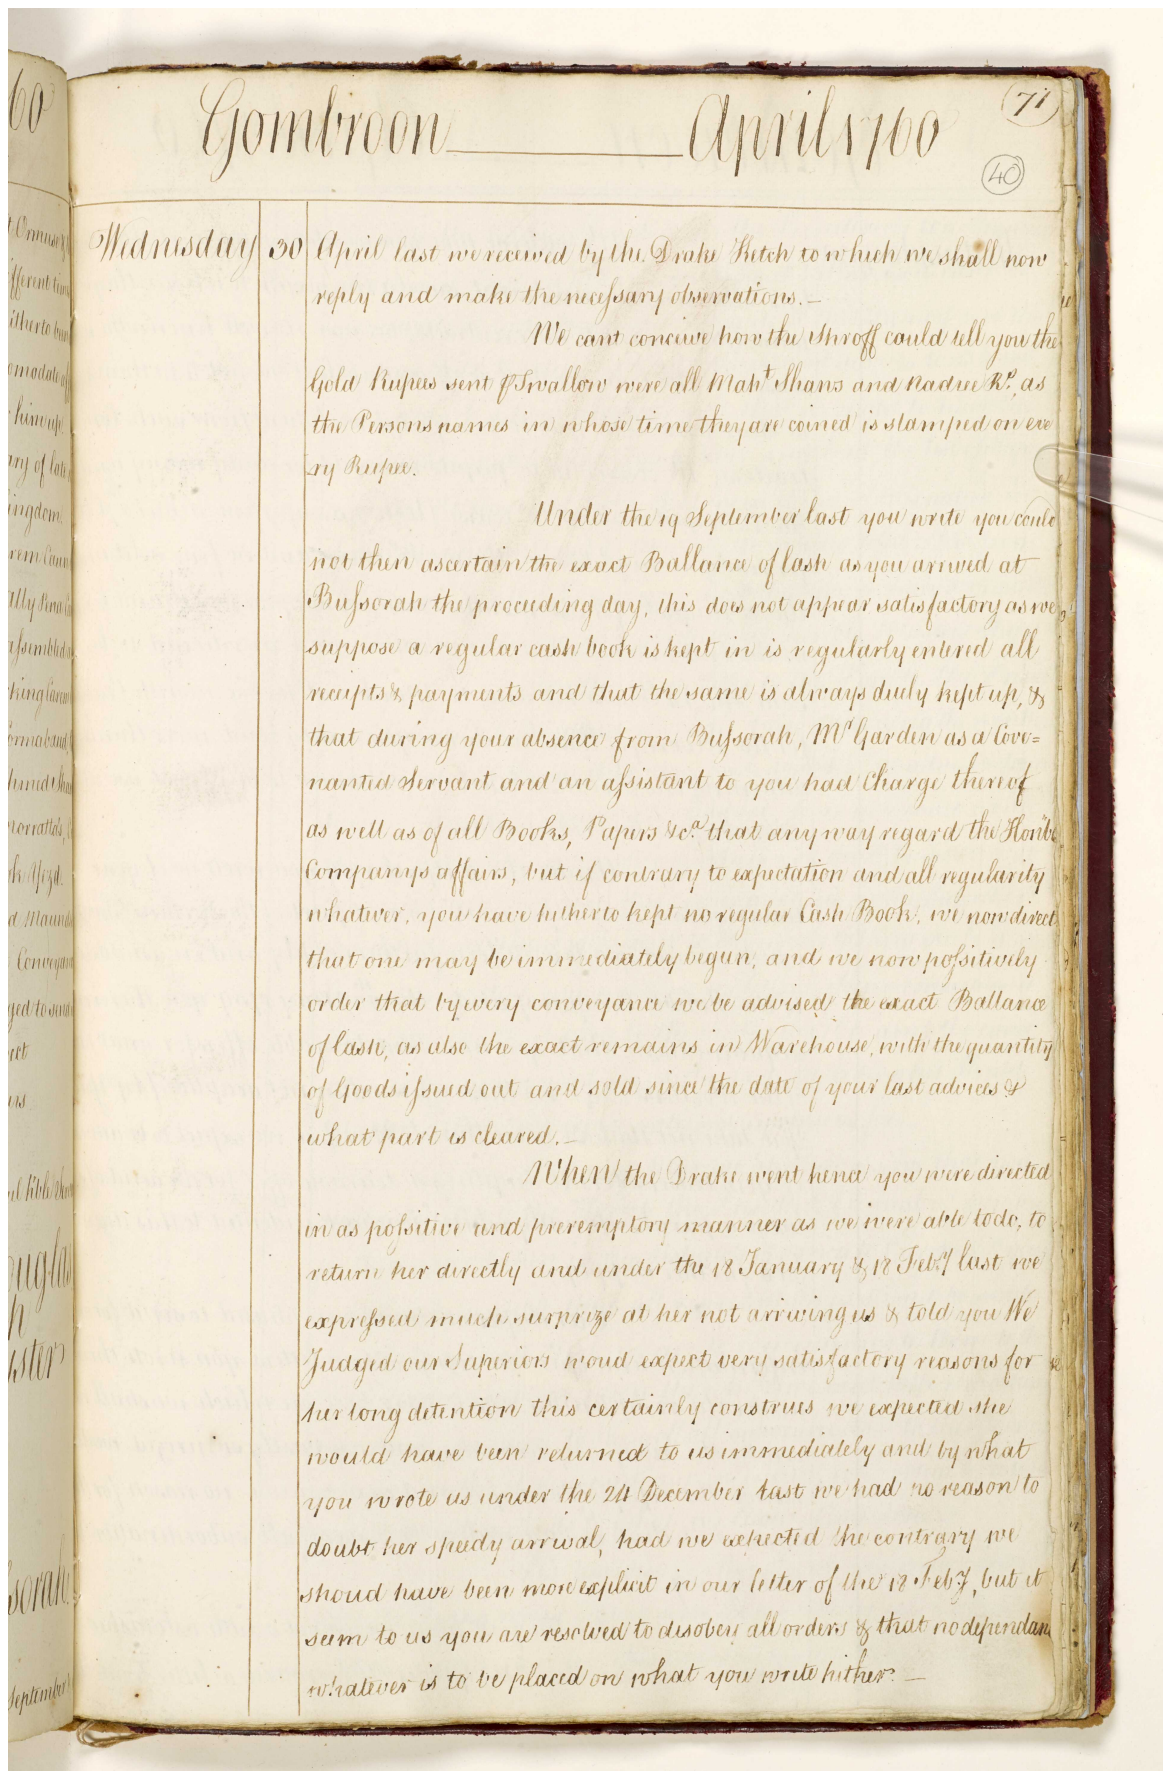 Gombroon April 1760
71
40
Wednesday 30 April last we received by the Drake Ketch to which we shall now
reply and make the necessary observations. —
We cant conceive how the Shroff could tell you the
Gold Rupees sent ⅌ Swallow were all Mahᵗ Shans and Nadree Rˢ, as
the Persons names in whose time they are coined is stamped on eve
ry Rupee.
Under the 19 September last you write you could
not then ascertain the exact Ballance of Cash as you arrived at
Bussorah the proceeding day, this does not appear satisfactory as we
suppose a regular cash book is kept in is regularly entered all
receipts & payments and that the same is always duely kept up, &
that during your absence from Bussorah, Mʳ Garden as a Cove=
nanted Servant and an assistant to you had Charge thereof
as well as of all Books, Papers &cᵃ that any way regard the Honble
Companys affairs, but if contrary to expectation and all regularity
whatever, you have hitherto kept no regular Cash Book, we now direct
that one may be immediately begun, and we now possitively
order that by every conveyance we be advised the exact Ballance
of Cash, as also the exact remains in Warehouse, with the quantity
of Goods issued out and sold since the date of your last advices &
what part is cleared. —
When the Drake went hence you were directed
in as possitive and preremptory manner as we were able to do, to
return her directly and under the 18 January & 18 Febʸ last we
expressed much surprize at her not arriving us & told you We
Judged our Superiors woud expect very satisfactory reasons for
her long detention this certainly construes we expected she
would have been returned to us immediately and by what
you wrote us under the 24 December last we had no reason to
doubt her speedy arrival, had we exhected the contrary we
shoud have been more explicit in our letter of the 18 Febʸ, but it
seem to us you are resolved to disobey all orders & that no dependan
whatever is to be placed on what you write hither. —